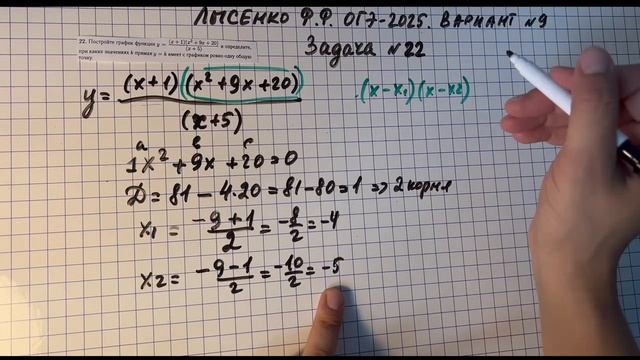 ЛЫСЕНКО Ф.Ф. ОГЭ-2025. ВАРИАНТ №9
Задача №22
22. Постройте график функции y = (x+1)(x²+9x+20)/(x+5) и определите,
при каких значениях k прямая y = k имеет с графиком ровно одну общую
точку.
y = (x+1)(x²+9x+20)/(x+5)
(x-x₁)(x-x₂)
a b c
1x²+9x+20=0
Д=81-4·20=81-80=1 => 2 корня
x₁ = (-9+1)/2 = -8/2 = -4
x₂ = (-9-1)/2 = -10/2 = -5